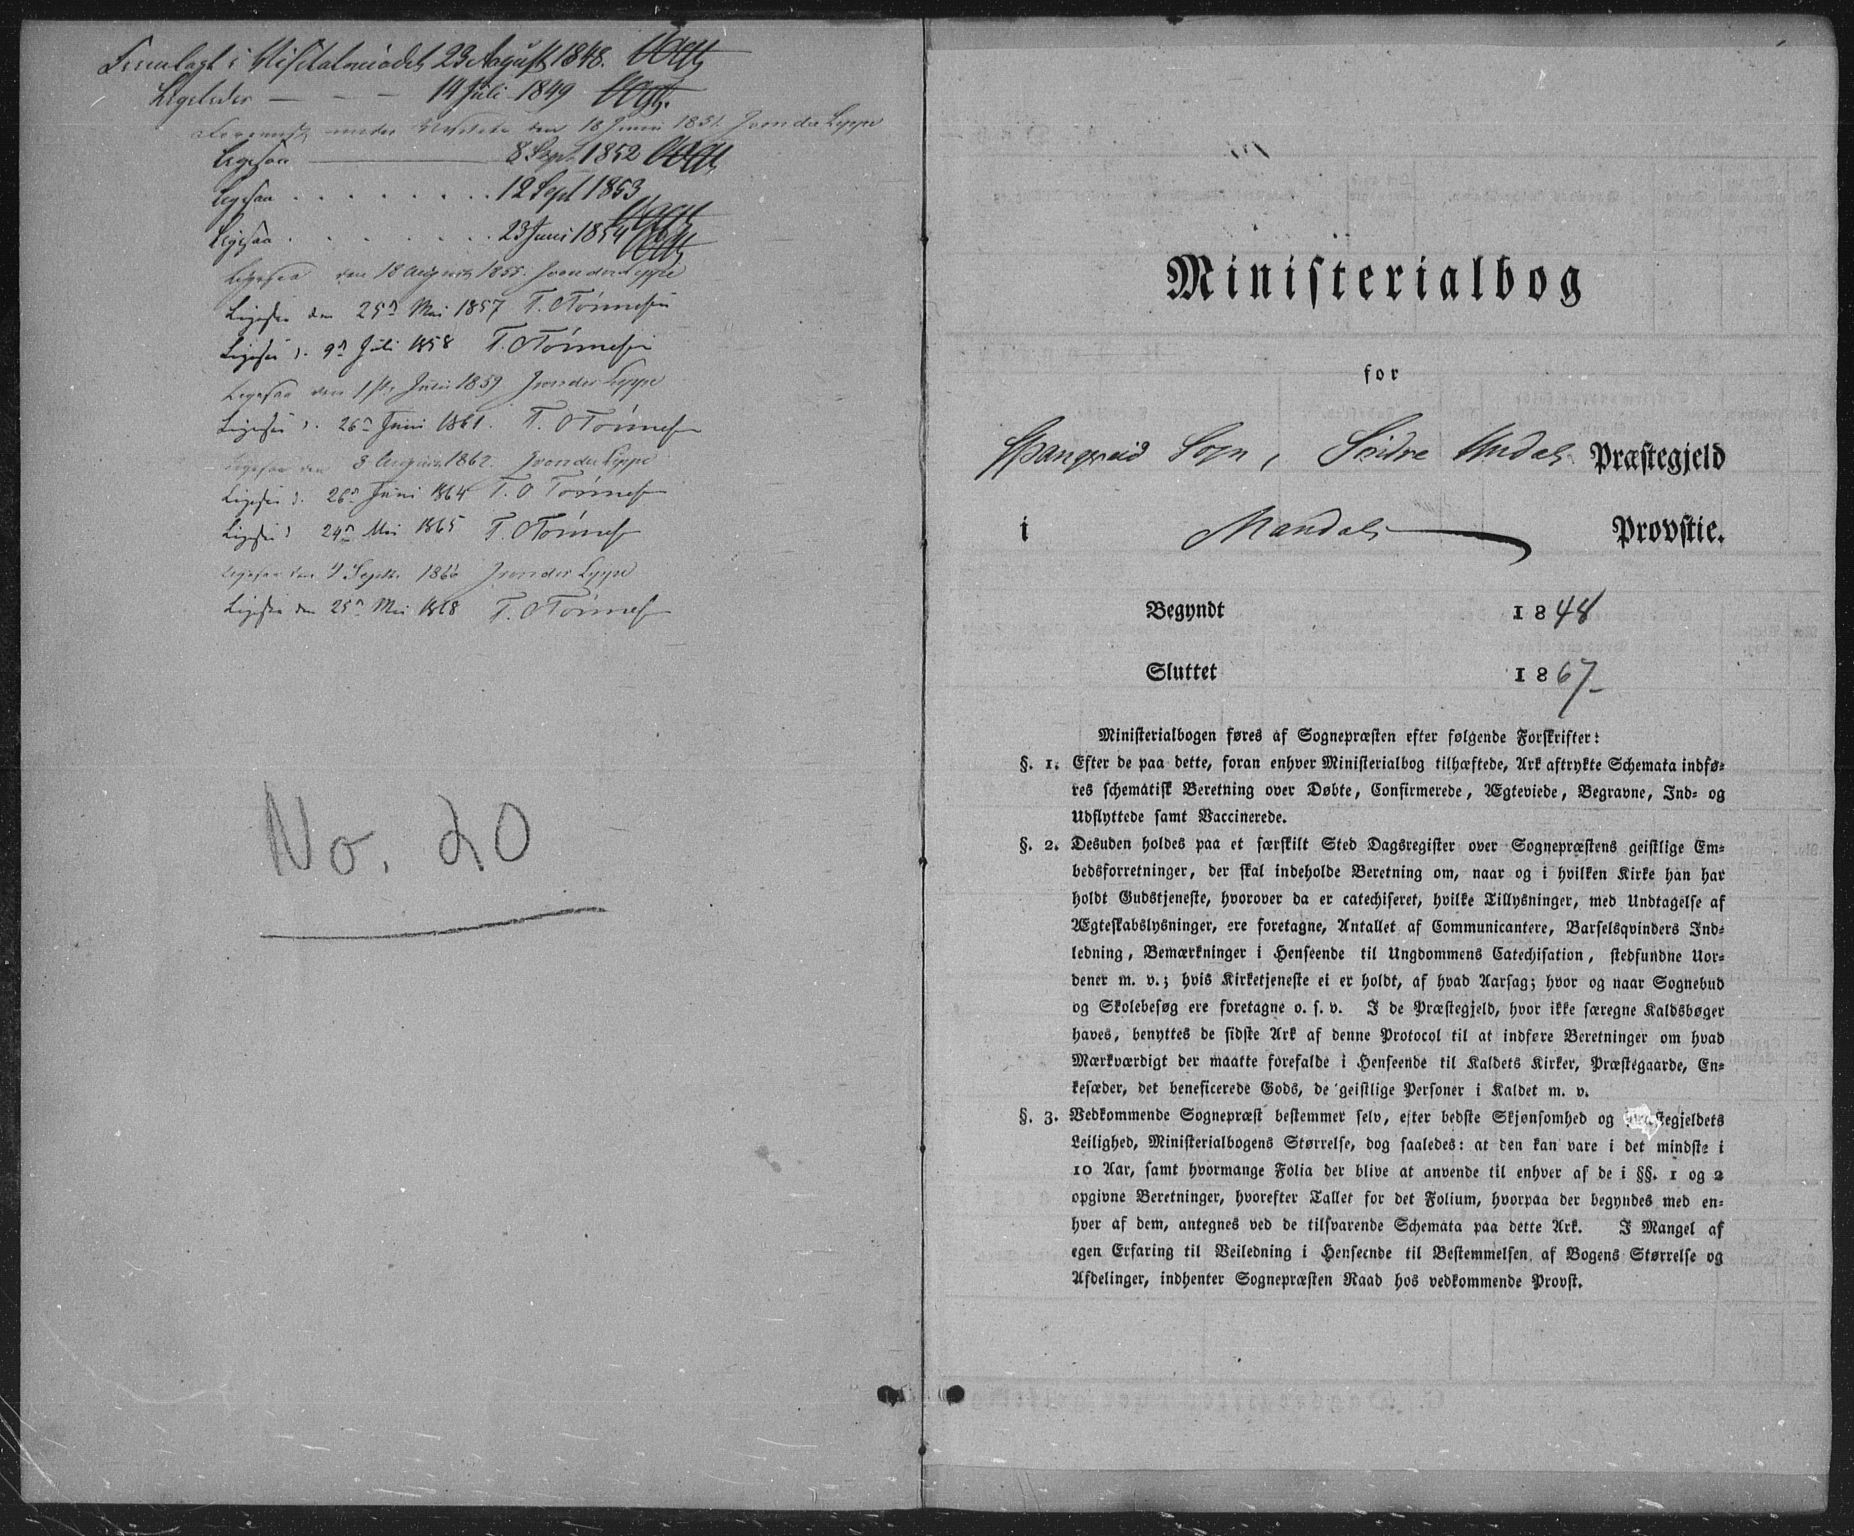 Fremlagt i Visitatsmödet 23 August 1848. Vogt
Ligeledes — — — 14 Juli 1849 Vogt.
Foreviist under Visitats den 18 Juni 1851. J von der Lippe
Ligesaa — 8 Sept. 1852 Vogt
Ligesaa . . . . . . . 12 Sept 1853 Vogt
Ligesaa . . . . . . 23 Juni 1854 Vogt
Ligesaa den 18 August 1855. J von der Lippe
Ligesaa den 25de Mai 1857 T. O Tönnesen
Ligesaa d. 9de Juli 1858 T. O Tönnesen
Ligesaa den 1ste Juli 1859 J von der Lippe
Ligesaa d. 26de Juni 1861. T. O Tönnesen
Ligesaa den 3 August 1862. J von der Lippe
Ligesaa d. 26de Juni 1864 T. O Tönnesen
Ligesaa d 24de Mai 1865 T. O Tönnesen
Ligesaa den Septbr. 1866 J von der Lippe
Ligesaa den 25de Mai 1868 T. O Tönnesen
No. 20
Ministerialbog
for
Spangereid Sogn, Söndre Undals Præstegjeld
i Mandals Provstie.
Begyndt 1848
Sluttet 1867
Ministerialbogen føres af Sognepræsten efter følgende Forskrifter:
§. 1. Efter de paa dette, foran enhver Ministerialbog tilhæftede, Ark aftrykte Schemata indfø-
res schematisk Beretning over Døbte, Confirmerede, Ægteviede, Begravne, Ind- og
Udflyttede samt Vaccinerede.
§. 2. Desuden holdes paa et særskilt Sted Dagsregister over Sognepræstens geistlige Em-
bedsforretninger, der skal indeholde Beretning om, naar og i hvilken Kirke han har
holdt Gudstjeneste, hvorover da er catechiseret, hvilke Tillysninger, med Undtagelse af
Ægteskabslysninger, ere foretagne, Antallet af Communicantere, Barselqvinders Ind-
ledning, Bemærkninger i Henseende til Ungdommens Catechisation, stedfundne Uor-
dener m. v.; hvis Kirketjeneste ei er holdt, af hvad Aarsag; hvor og naar Sognebud
og Skolebesøg ere foretagne o. s. v. I de Præstegjeld, hvor ikke særegne Kaldsbøger
haves, benyttes de sidste Ark af denne Protocol til at indføre Beretninger om hvad
Mærkværdigt der maatte forefalde i Henseende til Kaldets Kirker, Præstegaarde, En-
kesæder, det beneficerede Gods, de geistlige Personer i Kaldet m. v.
§. 3. Vedkommende Sognepræst bestemmer selv, efter bedste Skjønsomhed og Præstegjeldets
Leilighed, Ministerialbogens Størrelse, dog saaledes: at den kan vare i det mindste i
10 Aar, samt hvormange Folia der blive at anvende til enhver af de i §§. 1 og 2
opgivne Beretninger, hvorefter Tallet for det Folium, hvorpaa der begyndes med en-
hver af dem, antegnes ved de tilsvarende Schemata paa dette Ark. I Mangel af
egen Erfaring til Veiledning i Henseende til Bestemmelsen af Bogens Størrelse og
Afdelinger, indhenter Sognepræsten Raad hos vedkommende Provst.